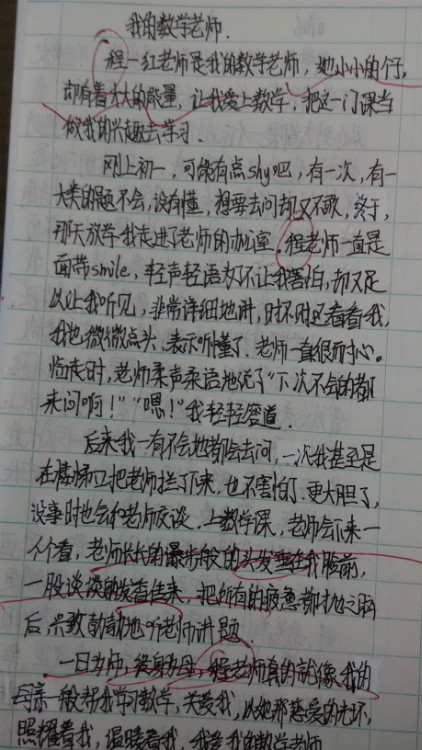 我的数学老师.
程一红老师是我的数学老师,她小小的个子,
却有着大大的能量,让我爱上数学,把这一门课当
做我的兴趣去学习.
刚上初一,可能有点shy吧,有一次,有一
大类的题不会,没有懂,想要去问却又不敢,终于,
那天放学我走进了老师的办公室.程老师一直是
面带smile,轻声轻语好不让我害怕,却又足
以让我听见,非常详细地讲,时不时还看看我,
我也微微点头,表示听懂了.老师一直很耐心。
临走时,老师柔声柔语地说了"下次不会的都
来问啊!""嗯!"我轻轻应道.
后来我一有不会地都会去问,一次我甚至是
在楼梯口把老师拦了下来,也不害怕了.更大胆了,
没事时也会和老师交谈.上数学课,老师会下来一
个个看,老师长长的瀑布般的头发垂在我脸前,
一股淡淡的发香传来,把所有的疲惫都抛之脑
后.兴致勃勃地听老师讲题.
一日为师,终身为母,程老师真的就像我的
母亲一般帮我学习数学,关爱我,以她那慈爱的光环,
照耀着我,温暖着我,我爱我的数学老师